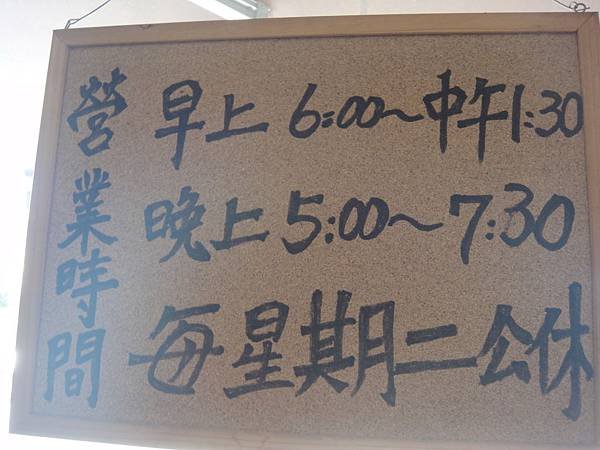 營業時間
早上 6:00~中午1:30
晚上 5:00~7:30
每星期二公休